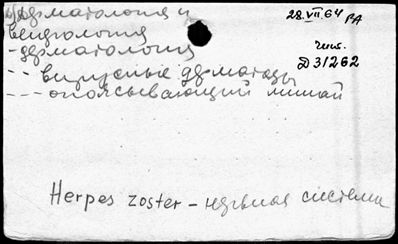 Дерматология и
венерология
- дерматология
- - вирусные дерматозы
- - - опоясывающий лишай
28.VII 64 РА
Чит.
Д31262
Herpes zoster – нервная система